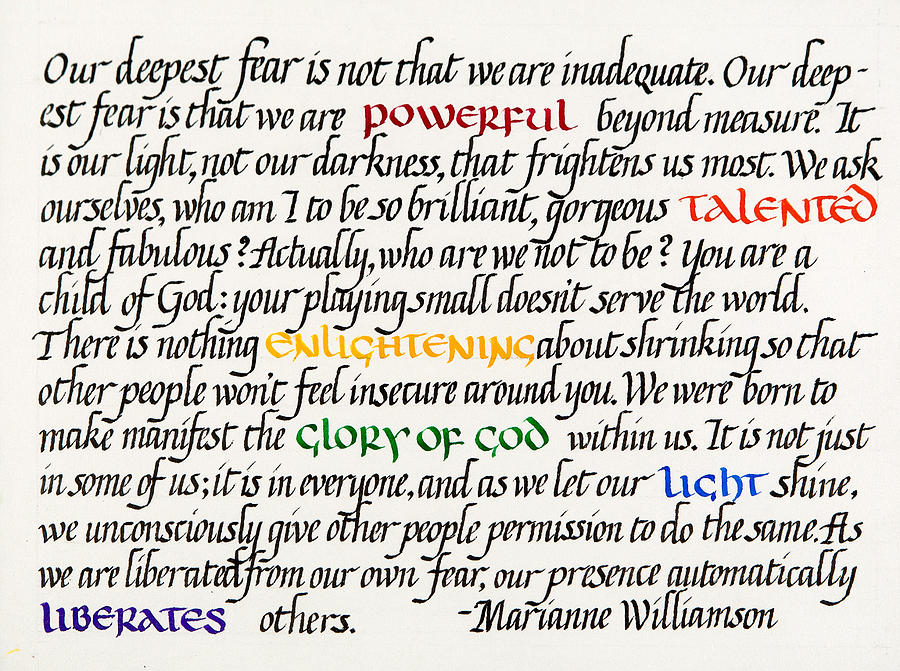 Our deepest fear is not that we are inadequate. Our deep-
est fear is that we are POWERFUL beyond measure. It
is our light, not our darkness, that frightens us most. We ask
ourselves, who am I to be so brilliant, gorgeous TALENTED
and fabulous? Actually, who are we not to be? You are a
child of God: your playing small doesn't serve the world.
There is nothing ENLIGHTENING about shrinking so that
other people won't feel insecure around you. We were born to
make manifest the GLORY OF GOD within us. It is not just
in some of us; it is in everyone, and as we let our LIGHT shine,
we unconsciously give other people permission to do the same. As
we are liberated from our own fear, our presence automatically
LIBERATES others. -Marianne Williamson